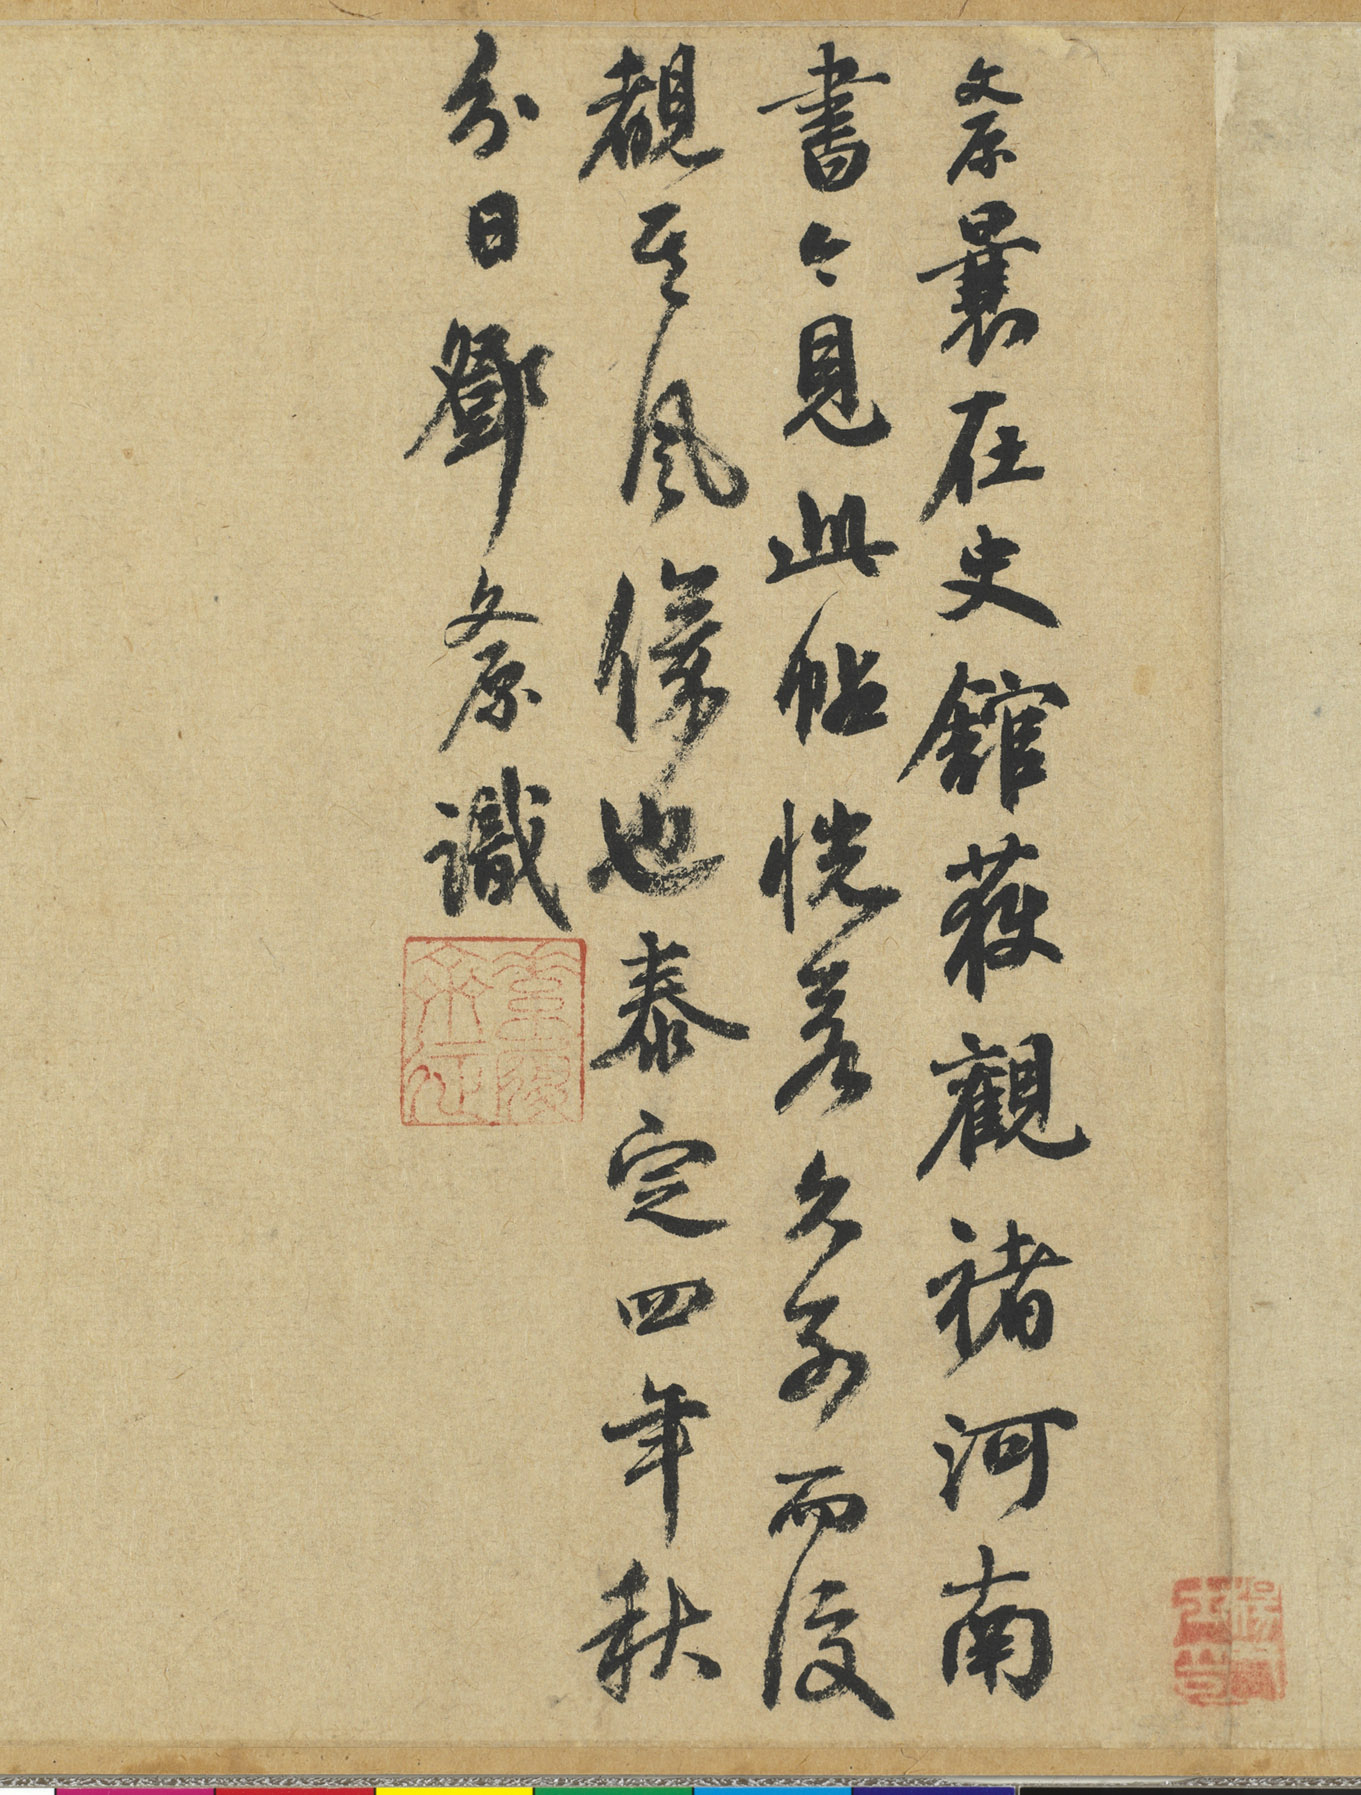 文原曩在史舘獲觀褚河南
書今見此帖恍若久別而復
覩其風儀也泰定四年秋
分日鄧文原識